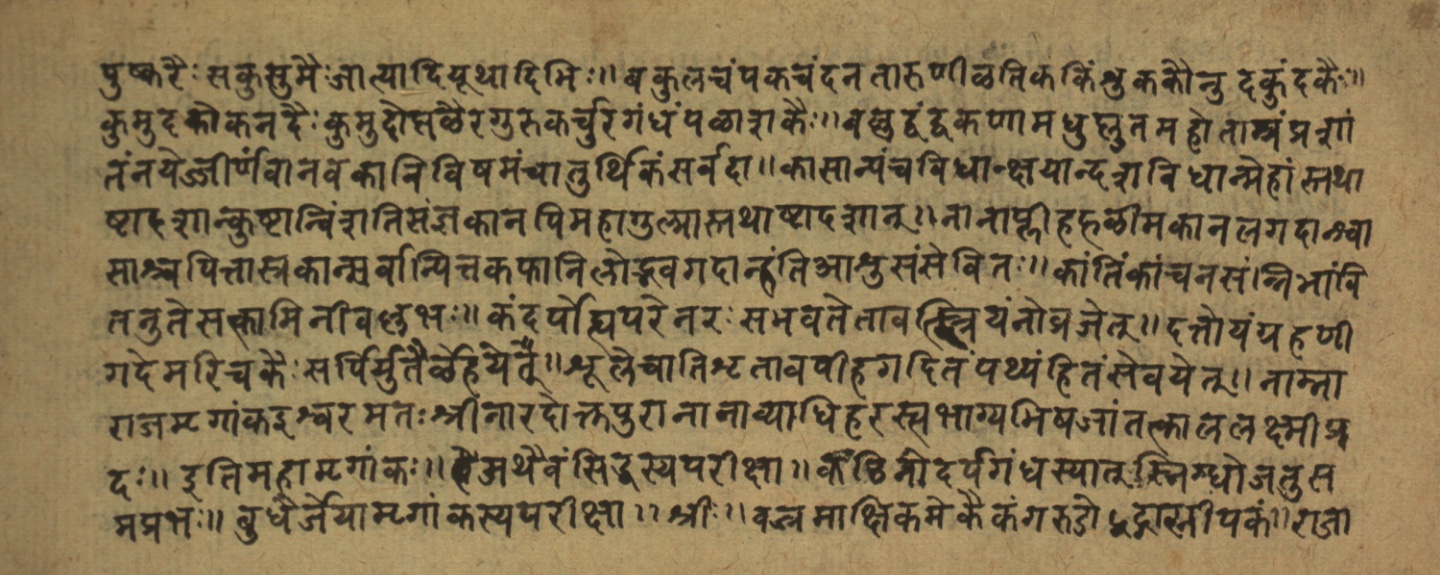 पुष्करैः सकुसुमैः जात्यादियूथादिभिः॥ बकुलचंपकचंदनतारुणीळतिककिंशुककौन्नुदकुंदकैः॥
कुमुदकोकनदैः कुमुदोत्पळैरगुरुकर्चुरगंधंपळाशकैः॥ वस्तुद्वंद्वकणामधुप्लुतमहो ताम्यं प्रशां
तंनयेज्जीर्णवानवकात्रिविषमंचातुर्थिकंसर्वदा॥ कासान्यंचविधान्क्षयान्दशविधान्मेहांस्तथा
ष्टादशान्कुष्टान्विंशतिसंज्ञकानपिमहागुल्मास्तथाष्टादशान्॥ नानाप्लीहहलीमकानलगदान्श्वा
साश्चपित्तास्रकान्सर्वान्पित्तकफानिलोद्भवगदान्हंतिआशुसंसेवितः॥ कांतिंकांचनसंन्निभांवि
तनुतेसत्कामिनीवल्लभः॥ कंदर्पोह्यपरेनरःसभवतेतावस्त्रियंनोव्रजेत्॥ दत्तोयंग्रहणी
गदेमरिचकैः सर्पिर्युतैर्ळेहयेत्॥ शूलेचातिशृतावषीहगदितंपथ्यंहितंसेवयेत्॥ नाम्ना
राजमृगांकइश्वरमतःश्रीनारदोक्तपुरानानाव्याधिहरस्त्वभाग्यभिषजांतत्काललक्ष्मीप्र
दः॥ इतिमहामृगांकः॥ अथैवंसिद्धस्यपरीक्षा॥ केंठिनोदर्पगंधस्यात्स्निग्धोजतुस
मप्रभः॥ बुधैर्ज्ञेयामृगांकस्यपरीक्षा॥ श्रीः॥ वज्रमाक्षिकमेकैकंगरुडोद्गारस्त्रीपकं॥ राजा